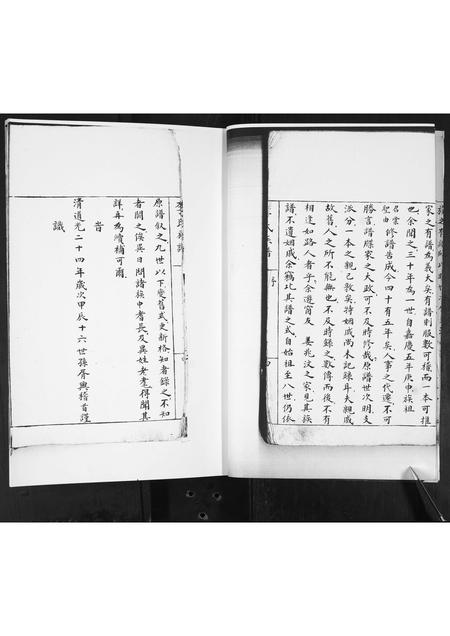 家之有譜為義大矣有譜則服數可稽而一本可推
也余聞之三十年為一世自嘉慶五年庚申族祖
名崇聖由修譜告成今四十有五年矣人事之代遷不可
勝言譜牒家之大政可不及時修哉原譜世次明支
派分一本之親已敦矣特姻戚尚未記録耳夫親戚
故舊人之所不能無也不及時錄之數傳而後不有
相逢如路人者乎余遵甯友 姜兆汶之家見其族
譜不遺姻戚余竊比其譜之式自始祖至八世仍依
氏族譜 序
氏族譜
原譜叙之九世以下變舊式更新格知者錄之不知
者闕之俟異日問諸族中耆長及異姓老耄得聞其
詳再為續補可爾
旹
清道光二十四年歲次甲辰十六世孫胥興稽首謹
識